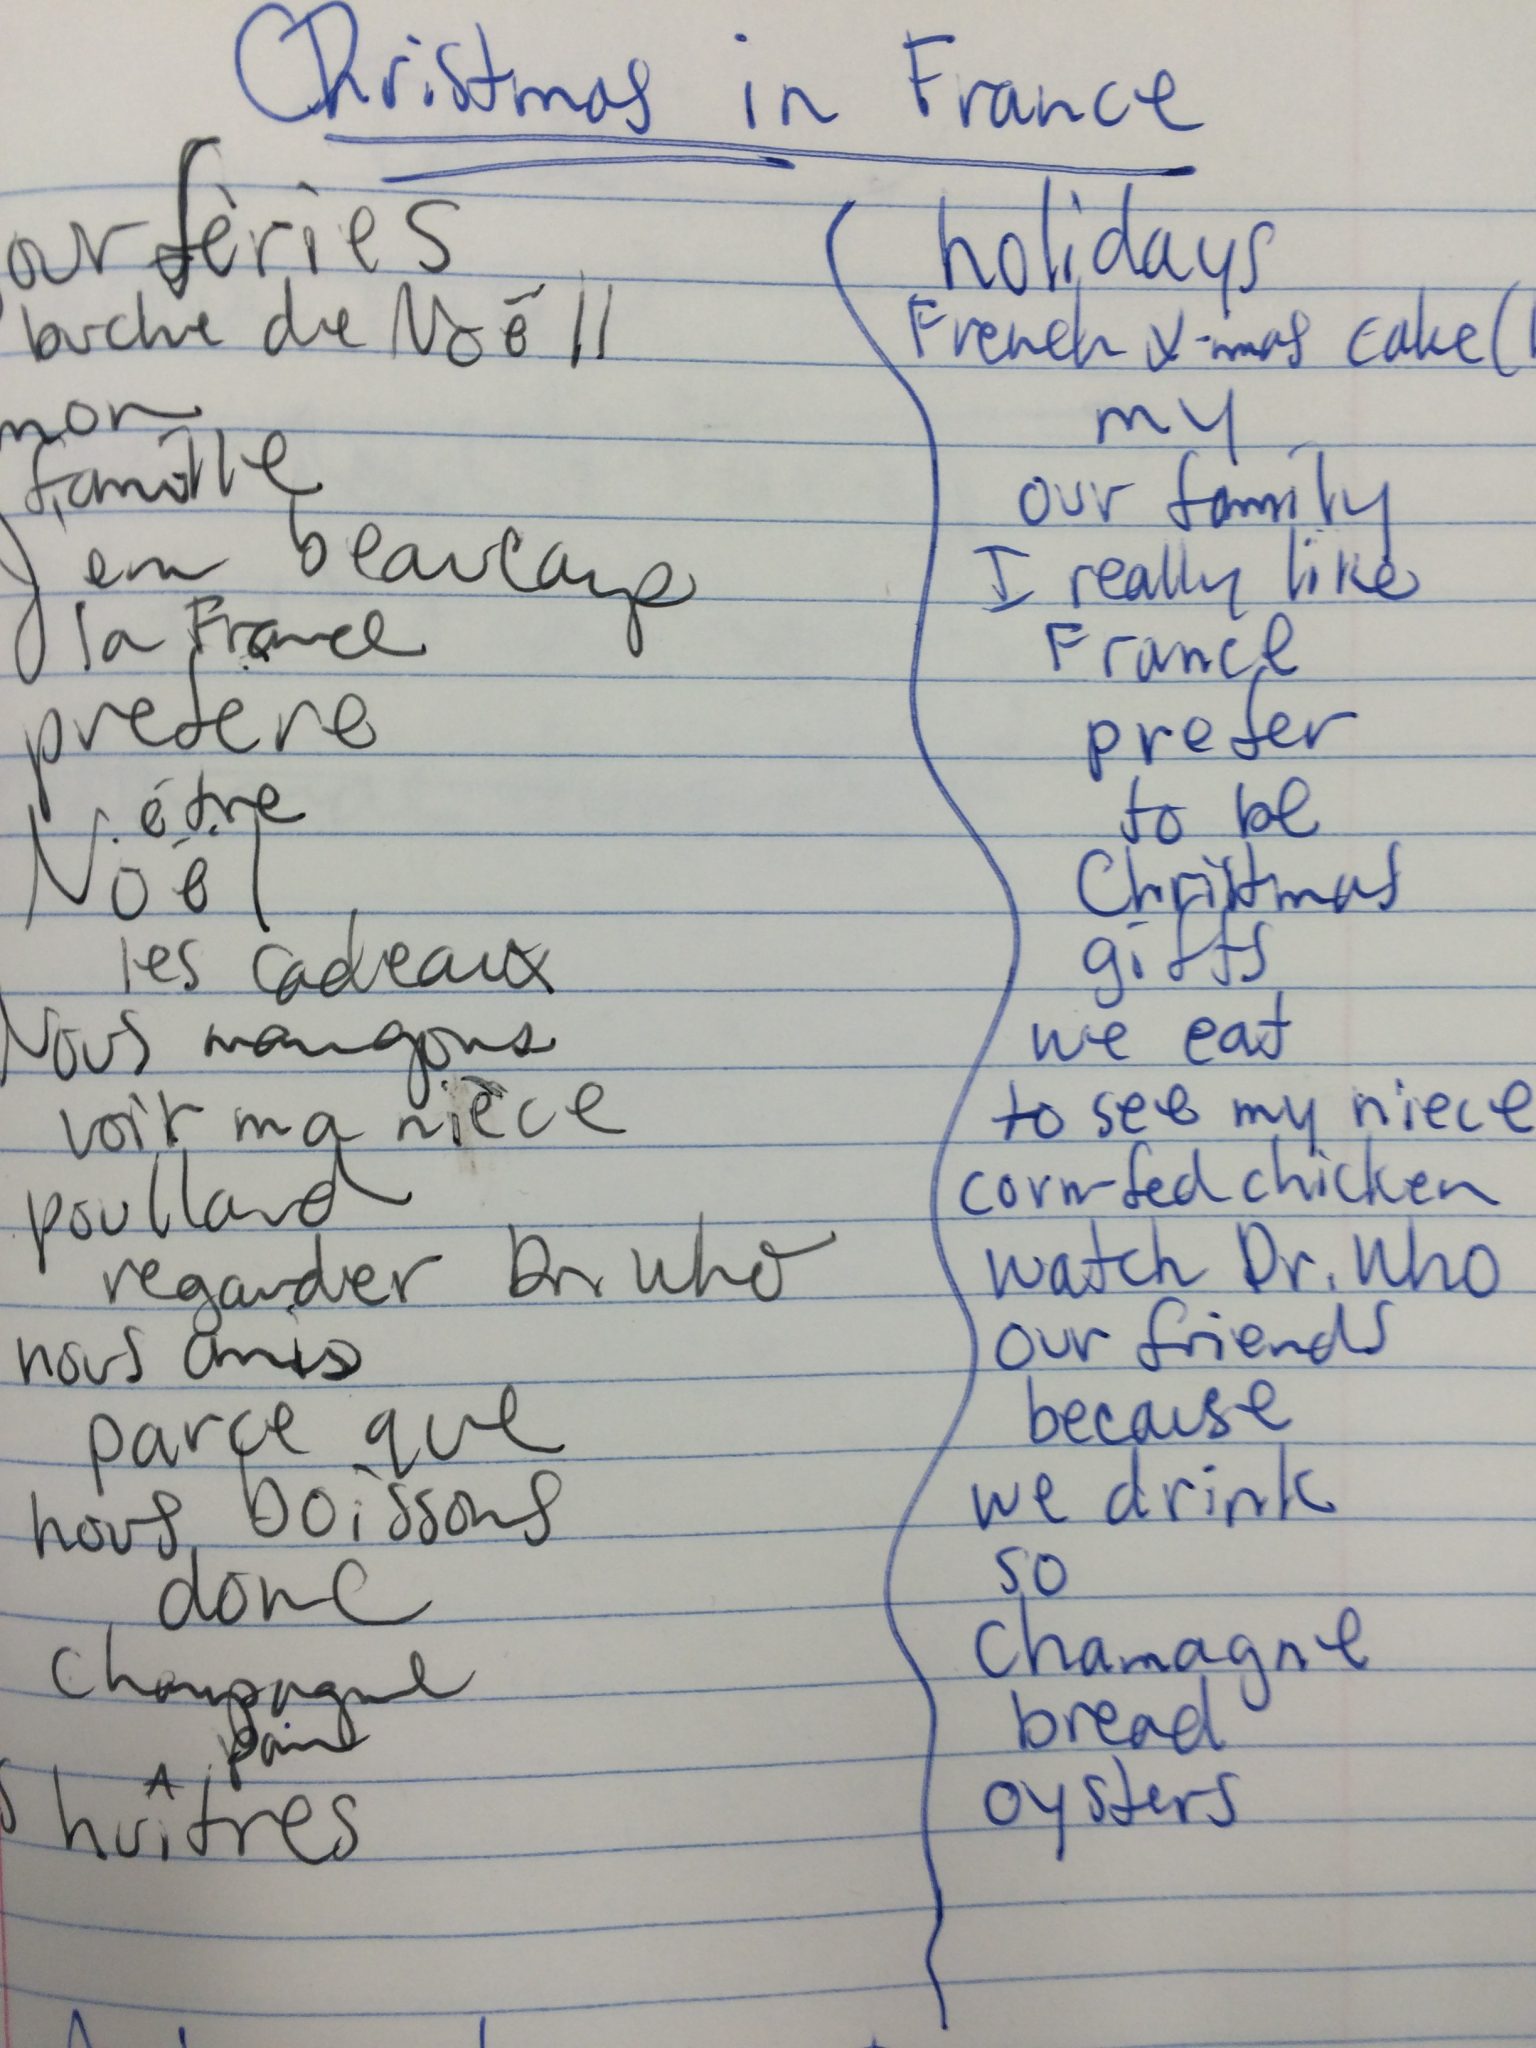 Christmas in France
our fèries holidays
buche de Noëll French x-mas cake (
mon my
famille our family
J em beaucaup I really like
la France France
prefere prefer
étre to be
Noël Christmas
les cadeaux gifts
Nous mangons we eat
voir ma nièce to see my niece
poulland corn-fed chicken
regarder Dr. Who watch Dr. Who
nous amis our friends
parce que because
nous boissons we drink
donc so
champagne chamagne
pain bread
huîtres oysters